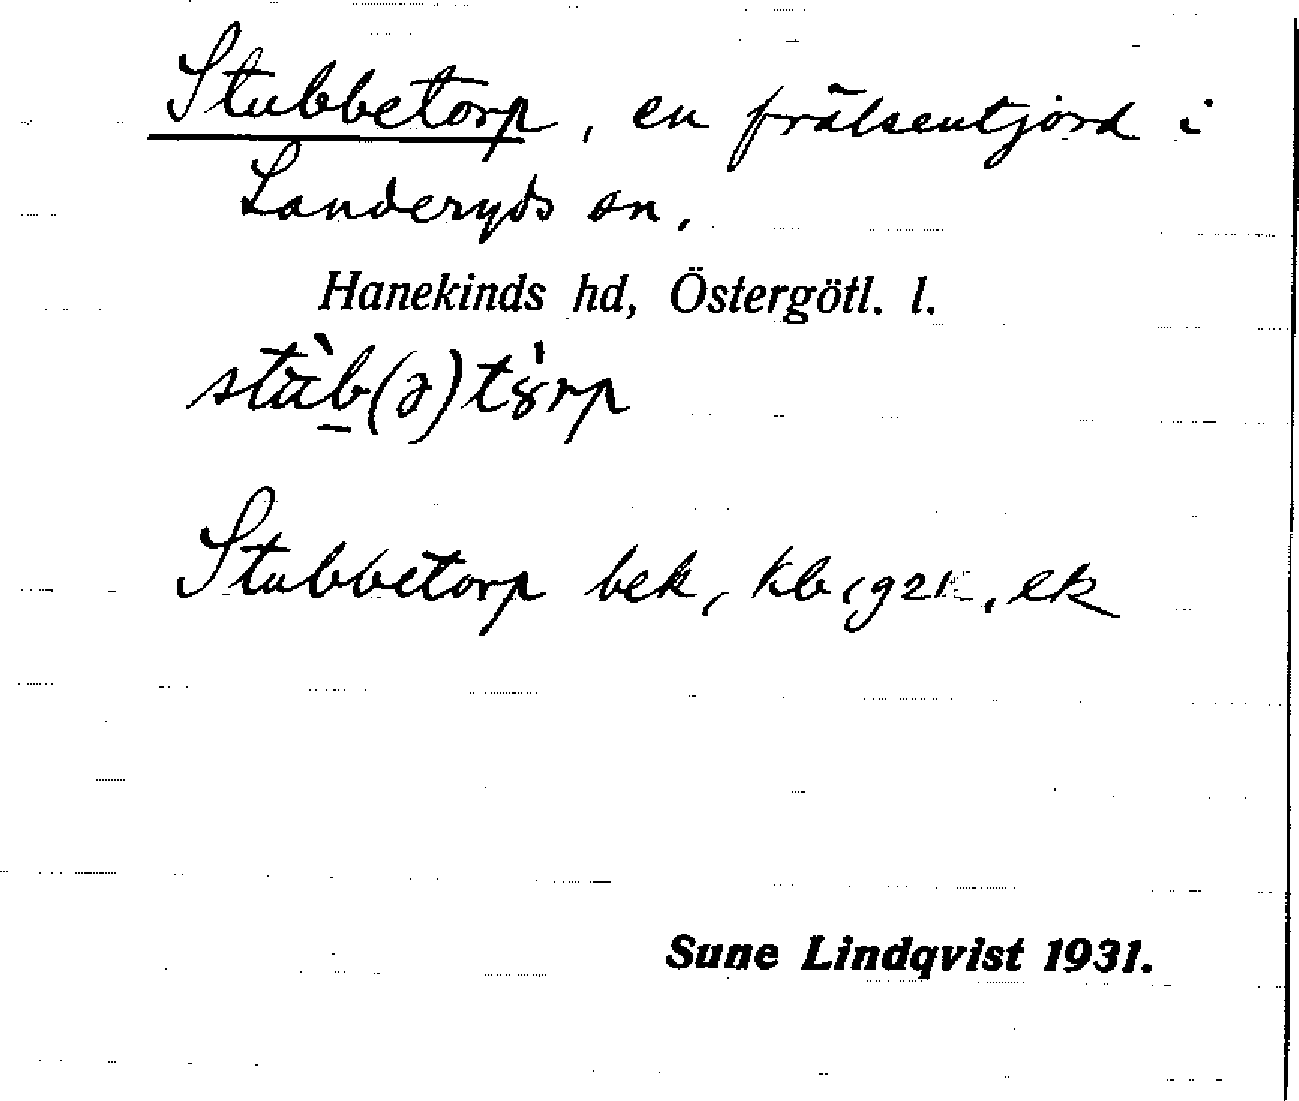 Stubbetorp, en frälseutjord i
Landeryds sn.
Hanekinds hd, Östergötl. l.
stùb(ə)tȣ̍rp
Stubbetorp bek, kb, gek, ek
Sune Lindqvist 1931.